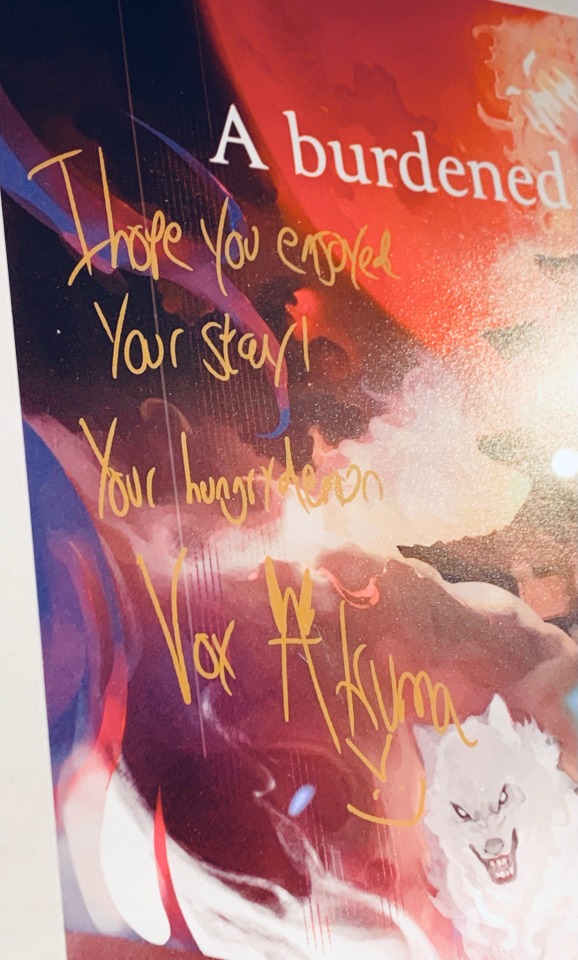 A burdened
I hope you enjoyed
Your stay!
Your hungry demon
Vox Akuma